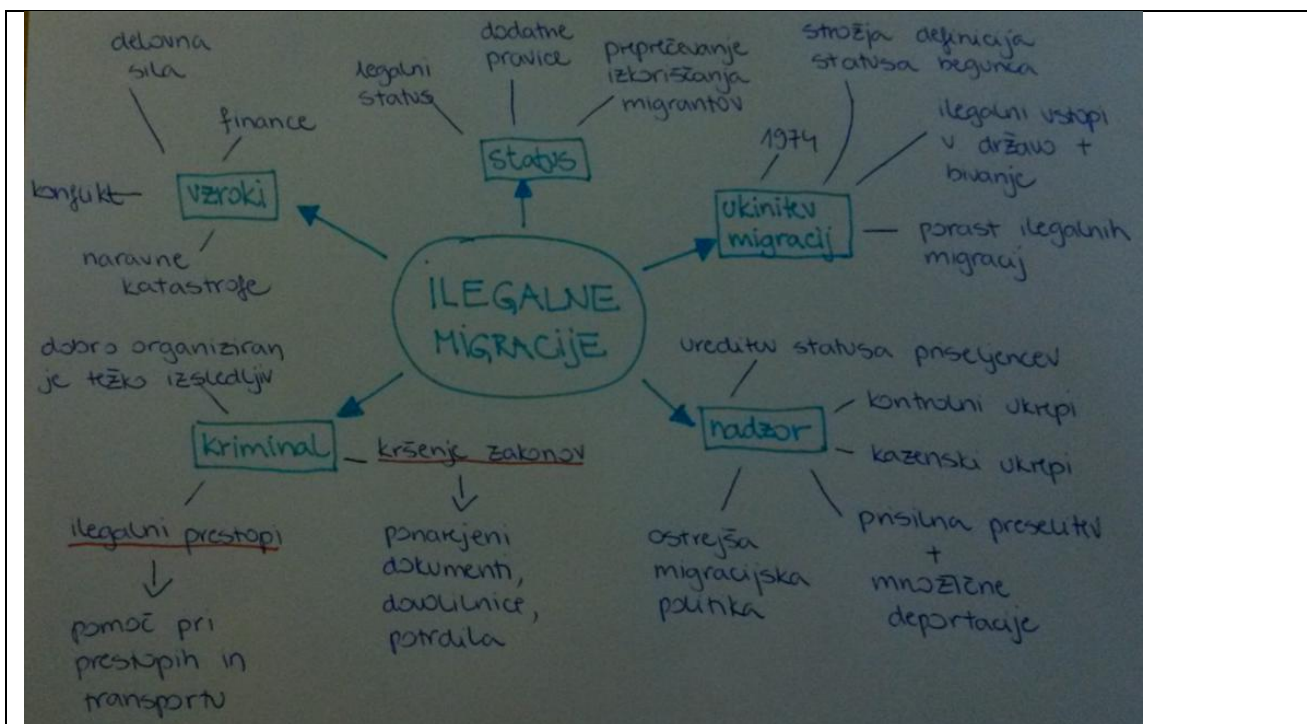 ILEGALNE
MIGRACIJE
vzroki
delovna
sila
finance
konflikt
naravne
katastrofe
status
legalni
status
dodatne
pravice
preprečevanje
izkoriščanja
migrantov
ukinitev
migracij
1974
strožja definicija
statusa begunca
ilegalni vstopi
v državo +
bivanje
porast ilegalnih
migracij
nadzor
ureditev statusa priseljencev
kontrolni ukrepi
kazenski ukrepi
prisilna preselitev
+
množične
deportacije
ostrejša
migracijska
politika
kriminal
dobro organiziran
je težko izsledljiv
kršenje zakonov
ponarejeni
dokumenti,
dovolilnice,
potrdila
ilegalni prestopi
pomoč pri
prestopih in
transportu